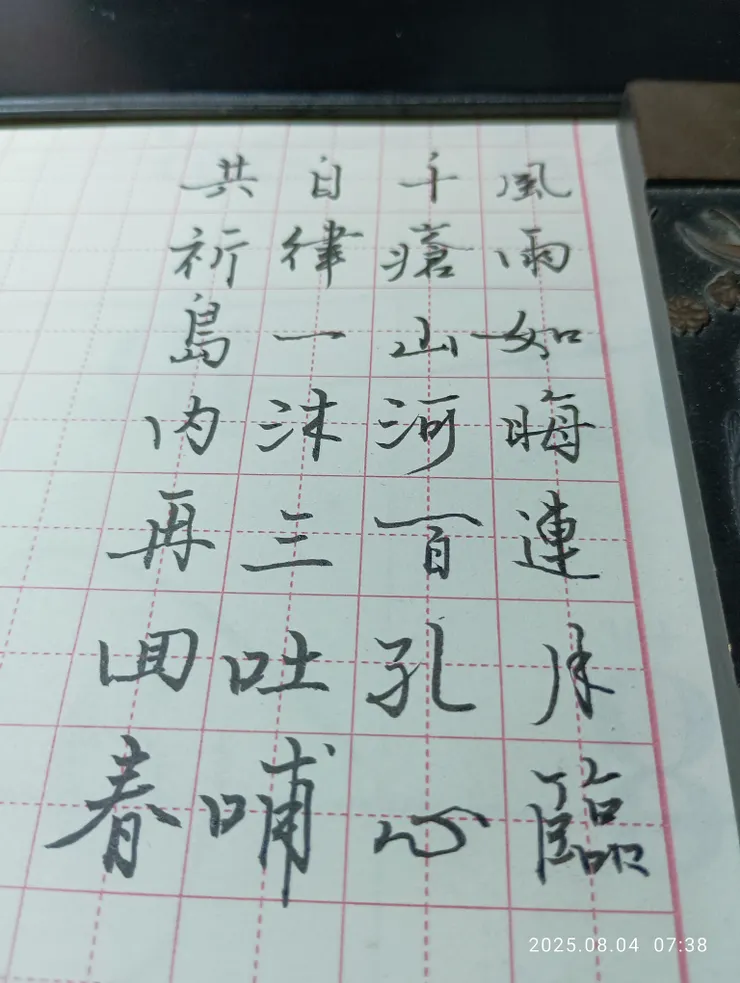 風雨如晦連月臨
千瘡山河百孔心
自律一沐三吐哺
共祈島內再回春
2025.08.04 07:38